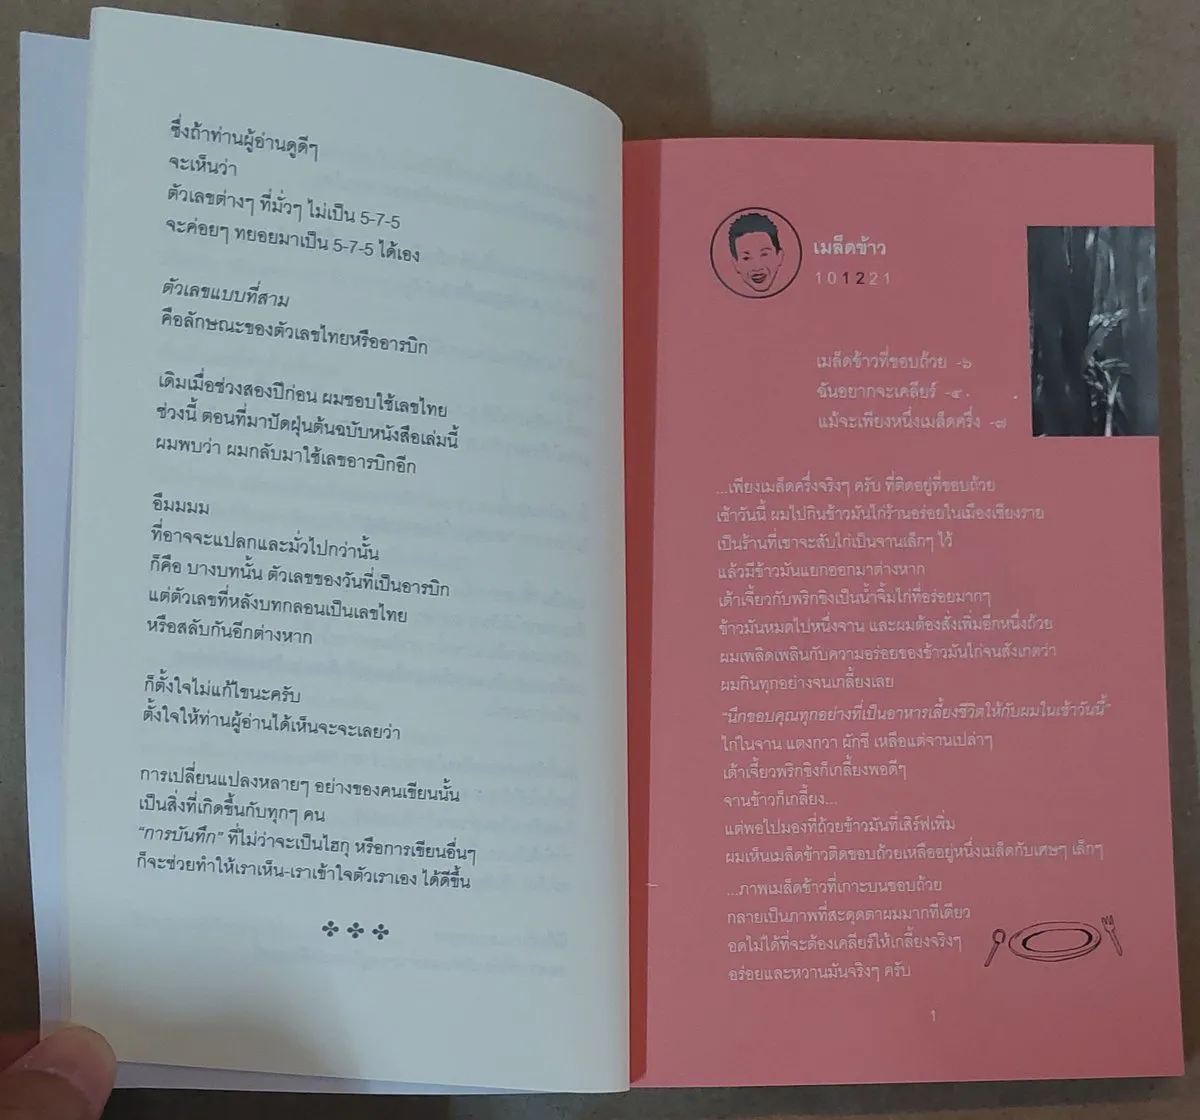 ซึ่งถ้าท่านผู้อ่านดูดีๆ
จะเห็นว่า
ตัวเลขต่างๆ ที่มั่วๆ ไม่เป็น 5-7-5
จะค่อยๆ ทยอยมาเป็น 5-7-5 ได้เอง
ตัวเลขแบบที่สาม
คือลักษณะของตัวเลขไทยหรืออารบิก
เดิมเมื่อช่วงสองปีก่อน ผมชอบใช้เลขไทย
ช่วงนี้ ตอนที่มาปัดฝุ่นต้นฉบับหนังสือเล่มนี้
ผมพบว่า ผมกลับมาใช้เลขอารบิกอีก
อืมมมม
ที่อาจจะแปลกและมั่วไปกว่านั้น
ก็คือ บางบทนั้น ตัวเลขของวันที่เป็นอารบิก
แต่ตัวเลขที่หลังบทกลอนเป็นเลขไทย
หรือสลับกันอีกต่างหาก
ก็ตั้งใจไม่แก้ไขนะครับ
ตั้งใจให้ท่านผู้อ่านได้เห็นจะจะเลยว่า
การเปลี่ยนแปลงหลายๆ อย่างของคนเขียนนั้น
เป็นสิ่งที่เกิดขึ้นกับทุกๆ คน
"การบันทึก" ที่ไม่ว่าจะเป็นไฮกุ หรือการเขียนอื่นๆ
ก็จะช่วยทำให้เราเห็น-เราเข้าใจตัวเราเอง ได้ดีขึ้น
เมล็ดข้าว
101221
เมล็ดข้าวที่ขอบถ้วย -๖
ฉันอยากจะเคลียร์ -๔
แม้จะเพียงหนึ่งเมล็ดครึ่ง -๘
...เพียงเมล็ดครึ่งจริงๆ ครับ ที่ติดอยู่ที่ขอบถ้วย
เช้าวันนี้ ผมไปกินข้าวมันไก่ร้านอร่อยในเมืองเชียงราย
เป็นร้านที่เขาจะสับไก่เป็นจานเล็กๆ ไว้
แล้วมีข้าวมันแยกออกมาต่างหาก
เต้าเจี้ยวกับพริกขิงเป็นน้ำจิ้มไก่ที่อร่อยมากๆ
ข้าวมันหมดไปหนึ่งจาน และผมต้องสั่งเพิ่มอีกหนึ่งถ้วย
ผมเพลิดเพลินกับความอร่อยของข้าวมันไก่จนสังเกตว่า
ผมกินทุกอย่างจนเกลี้ยงเลย
"นึกขอบคุณทุกอย่างที่เป็นอาหารเลี้ยงชีวิตให้กับผมในเช้าวันนี้"
ไก่ในจาน แตงกวา ผักชี เหลือแต่จานเปล่าๆ
เต้าเจี้ยวพริกขิงก็เกลี้ยงพอดีๆ
จานข้าวก็เกลี้ยง...
แต่พอไปมองที่ถ้วยข้าวมันที่เสิร์ฟเพิ่ม
ผมเห็นเมล็ดข้าวติดขอบถ้วยเหลืออยู่หนึ่งเมล็ดกับเศษๆ เล็กๆ
...ภาพเมล็ดข้าวที่เกาะบนขอบถ้วย
กลายเป็นภาพที่สะดุดตาผมมากทีเดียว
อดไม่ได้ที่จะต้องเคลียร์ให้เกลี้ยงจริงๆ
อร่อยและหวานมันจริงๆ ครับ
1